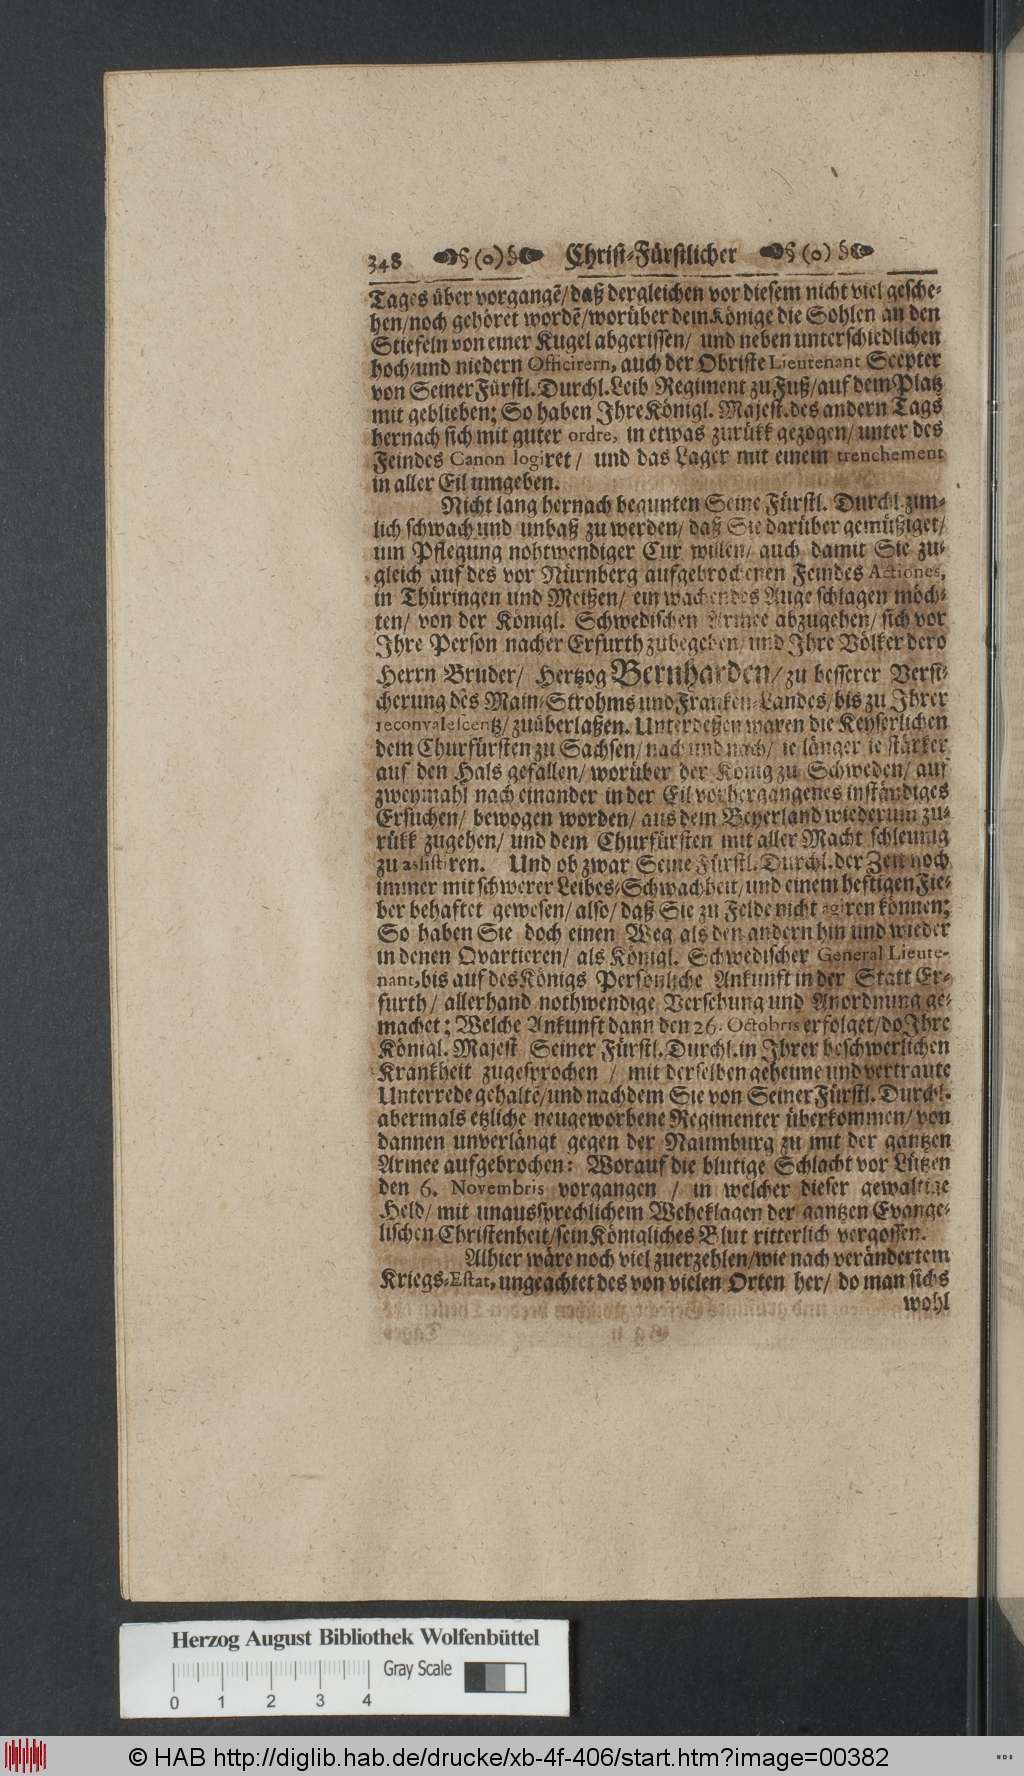 348 §(o)§ Christ-Fürstlicher §(o)§
Tages über vorgangẽ/daß dergleichen vor diesem nicht viel gesche-
hen/noch gehöret wordẽ/worüber dem Könige die Sohlen an den
Stiefeln von einer Kugel abgerissen/ und neben unterschiedlichen
hoch-und niedern Officirern, auch der Obriste Lieutenant Scepter
von Seiner Fürstl. Durchl. Leib Regiment zu Fuß/auf dem Platz
mit geblieben; So haben Ihre Königl. Majest. des andern Tags
hernach sich mit guter ordre, in etwas zurükk gezogen/ unter des
Feindes Canon logiret/ und das Lager mit einem trenchement
in aller Eil umgeben.
Nicht lang hernach begunten Seine Fürstl. Durchl. zim-
lich schwach und unbaß zu werden/ daß Sie darüber gemüßiget/
um Pflegung nohtwendiger Cur willen/ auch damit Sie zu-
gleich auf des vor Nürnberg aufgebrochenen Feindes Actiones,
in Thüringen und Meißen/ ein wachendes Auge schlagen möch-
ten/ von der Königl. Schwedischen Armee abzugehen/ sich vor
Ihre Person nacher Erfurth zubegeben/ und Ihre Völker dero
Herrn Bruder/ Hertzog Bernharden/ zu besserer Versi-
cherung des Main-Strohms und Franken-Landes/ bis zu Ihrer
reconvalescentz/ zuüberlaßen. Unterdeßen waren die Keyserlichen
dem Churfürsten zu Sachsen/ nach und nach/ ie länger ie stärker
auf den Hals gefallen/ worüber der König zu Schweden/ auf
zweymahl nach einander in der Eil vorhergangenes inständiges
Ersuchen/ bewogen worden/ aus dem Beyerland wiederum zu-
rükk zugehen/ und dem Churfürsten mit aller Macht schleunig
zu assistiren. Und ob zwar Seine Fürstl. Durchl. der Zeit noch
immer mit schwerer Leibes-Schwachheit/ und einem heftigen Fie-
ber behaftet gewesen/ also/ daß Sie zu Felde nicht agiren können;
So haben Sie doch einen Weg als den andern hin und wieder
in denen Qvartieren/ als Königl. Schwedischer General Lieute-
nant, bis auf des Königs Persönliche Ankunft in der Statt Er-
furth/ allerhand nothwendige Versehung und Anordnung ge-
machet; Welche Ankunft dann den 26. Octobris erfolget/ do Ihre
Königl. Majest Seiner Fürstl. Durchl. in Ihrer beschwerlichen
Krankheit zugesprochen / mit derselben geheime und vertraute
Unterrede gehaltẽ/ und nachdem Sie von Seiner Fürstl. Durchl.
abermals etzliche neugeworbene Regimenter überkommen/ von
dannen unverlängt gegen der Naumburg zu mit der gantzen
Armee aufgebrochen: Worauf die blutige Schlacht vor Lützen
den 6. Novembris vorgangen / in welcher dieser gewaltige
Held/ mit unaussprechlichem Weheklagen der gantzen Evange-
lischen Christenheit/ sein Königliches Blut ritterlich vergossen.
Alhier wäre noch viel zuerzehlen/ wie nach verändertem
Kriegs-Estat, ungeachtet des von vielen Orten her/ do man sichs
wohl
Herzog August Bibliothek Wolfenbüttel
Gray Scale
0 1 2 3 4
© HAB http://diglib.hab.de/drucke/xb-4f-406/start.htm?image=00382